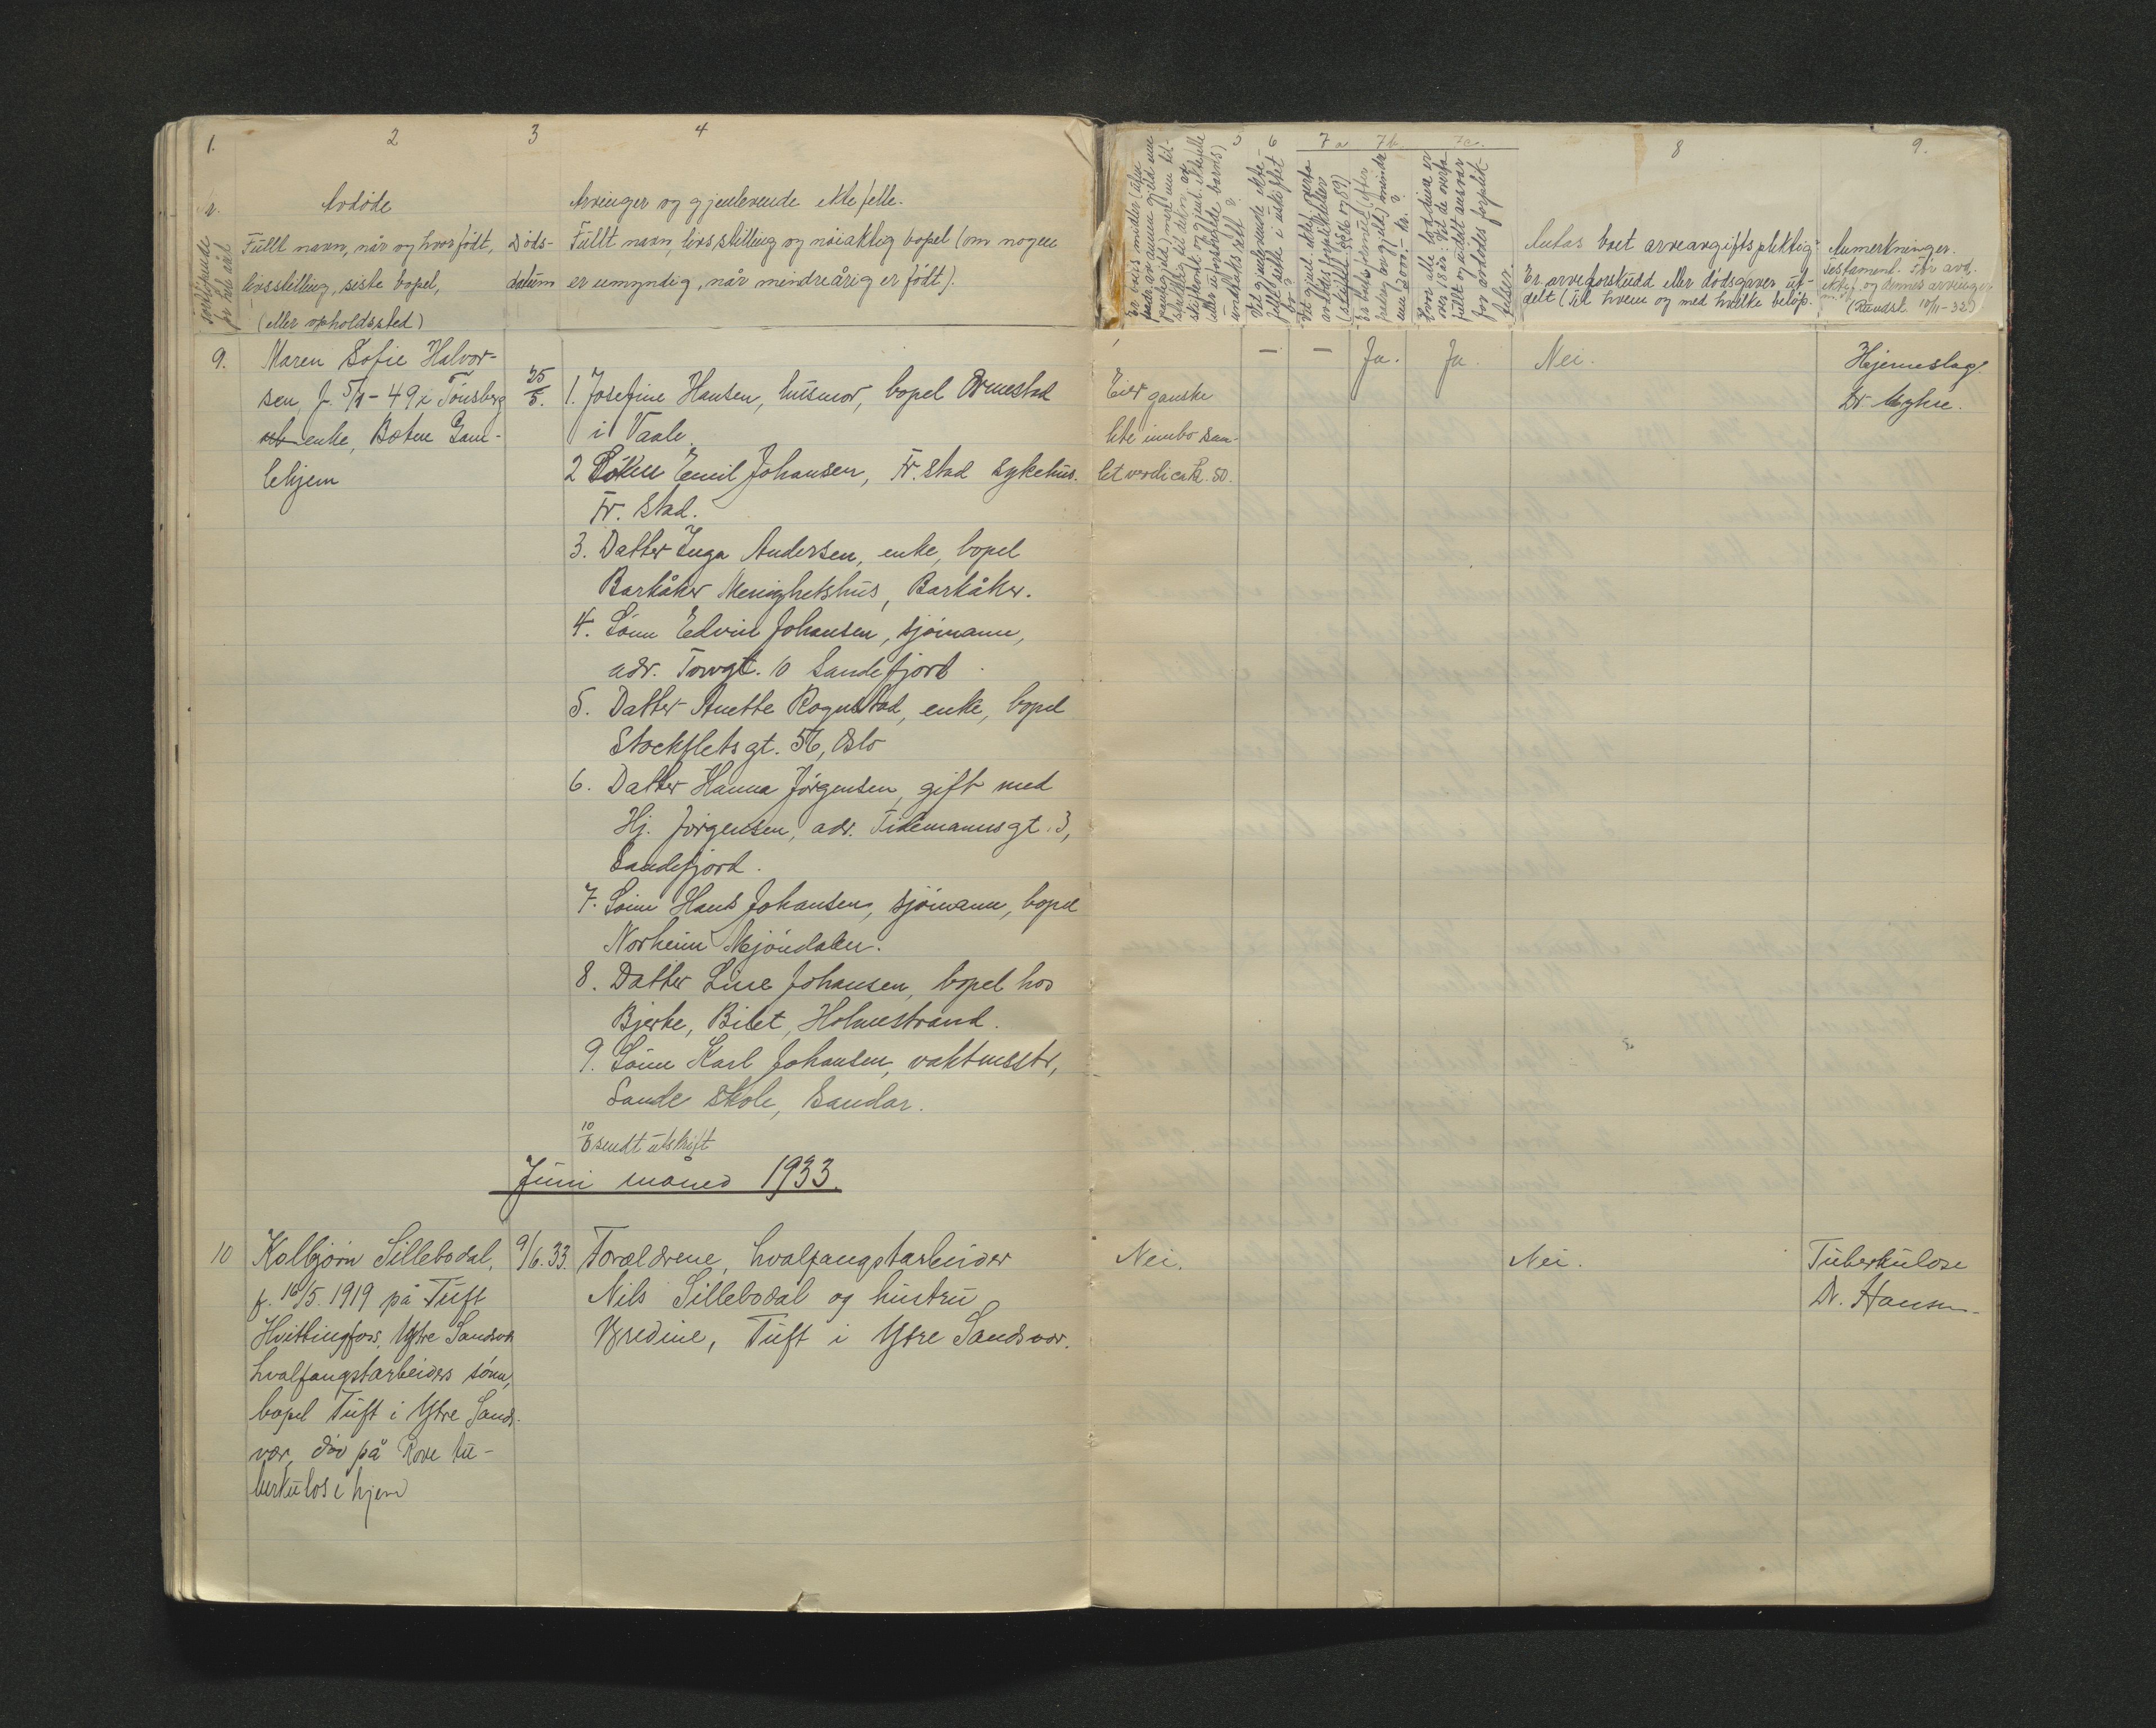 1. 2 3 4
Avdöde
Arvinger og gjenlevende ektefelle.
Fullt navn, når og hvor födt,
Döds-
Fullt navn, livsstilling og nöiaktig bopel (om nogen
livsstilling, siste bopel,
datum
er umyndig, når mindreårig er födt).
(eller opholdssted)
9. Maren Sofie Halvor-
sen, f. 5/1-49 i Tönsberg
enke, Botne Gam-
lehjem
25/5.
1. Josefine Hansen, husmor, bopel Ormestad
i Vaale.
2 Emil Johansen, Fr.stad sykehus.
Fr. Stad.
3. Datter Inga Andersen, enke, bopel
Barkåker Menighetshus, Barkåker.
4. Sönn Edvin Johansen, sjömann,
adr. Torvgt. 10 Sandefjord.
5. Datter Anette Rognstad, enke, bopel
Stockfletsgt. 56, Oslo
6. Datter Hanna Jörgensen, gift med
Hj. Jörgensen, adr. Tidemannsgt. 3,
Sandefjord.
7. Sönn Hans Johansen, sjömann, bopel
Norheim Mjöndalen.
8. Datter Line Johansen, bopel hos
Bjerke, Bilet, Holmestrand.
9. Sönn Karl Johansen, vaktmestr,
Sande Skole, Sandar.
10/6 sendt utskrift
Juni måned 1933.
10 Kolbjörn Sillebodal,
f. 16/5. 1919 på Tuft
Hvittingfoss, Ytre Sandsvær
hvalfangstarbeiders sönn,
bopel Tuft i Ytre Sands-
vær, död på Rove tu-
berkulosehjem
9/6.33.
Forældrene, hvalfangstarbeider
Nils Sillebodal og hustru
Bredine, Tuft i Ytre Sandsvær.
5 6 7a 7b. 7c. 8 9.
Antas boet arveavgiftspliktig?
Er arveforskudd eller dödsgaver ut-
delt (til hvem og med hvilke belöp.
Anmerkninger.
(Rundskr. 10/11-32)
Eier ganske
lite innbo sam-
let verdi ca kr. 50.
— — Ja. Ja. Nei.
Hjerneslag.
Dr. Myhre.
Nei. Nei.
Tuberkulose
Dr. Hansen